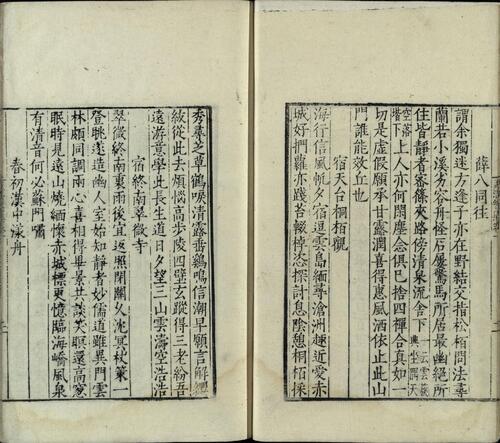 薛八同往
謂余獨迷方逢子亦在野結交指松栢問法尋
蘭若小溪劣容舟怪石屢驚馬所居最幽絕所
住皆靜者密篠夾路傍清泉流舍下一云雲蔟興座隅天
空落堦下上人亦何聞塵念俱已捨四禪合真如一
切是虛假願承甘露潤喜得惠風洒依止此山
門誰能效丘也
宿天台桐栢觀
海行信風帆夕宿逗雲島緬尋滄洲趣近愛赤
城好捫蘿亦踐苔輟棹恣探討息陰憩桐栢採
秀尋芝草鶴唳清露垂鷄鳴信潮早願言解纓
紱從此去煩惱高步陵四壁玄蹤得三老紛吾
遠游意學此長生道日夕望三山雲濤空浩浩
宿終南翠微寺
翠微終南裏雨後宜返照閉關久沈冥杖策一
登眺遂造幽人室始知靜者妙儒道雖異門雲
林頗同調兩心喜相得畢景共談笑暝還高窻
眠時見遠山燒緬懷赤城標更憶臨海嶠風泉
有清音何必蘇門嘯
春初漢中漾舟